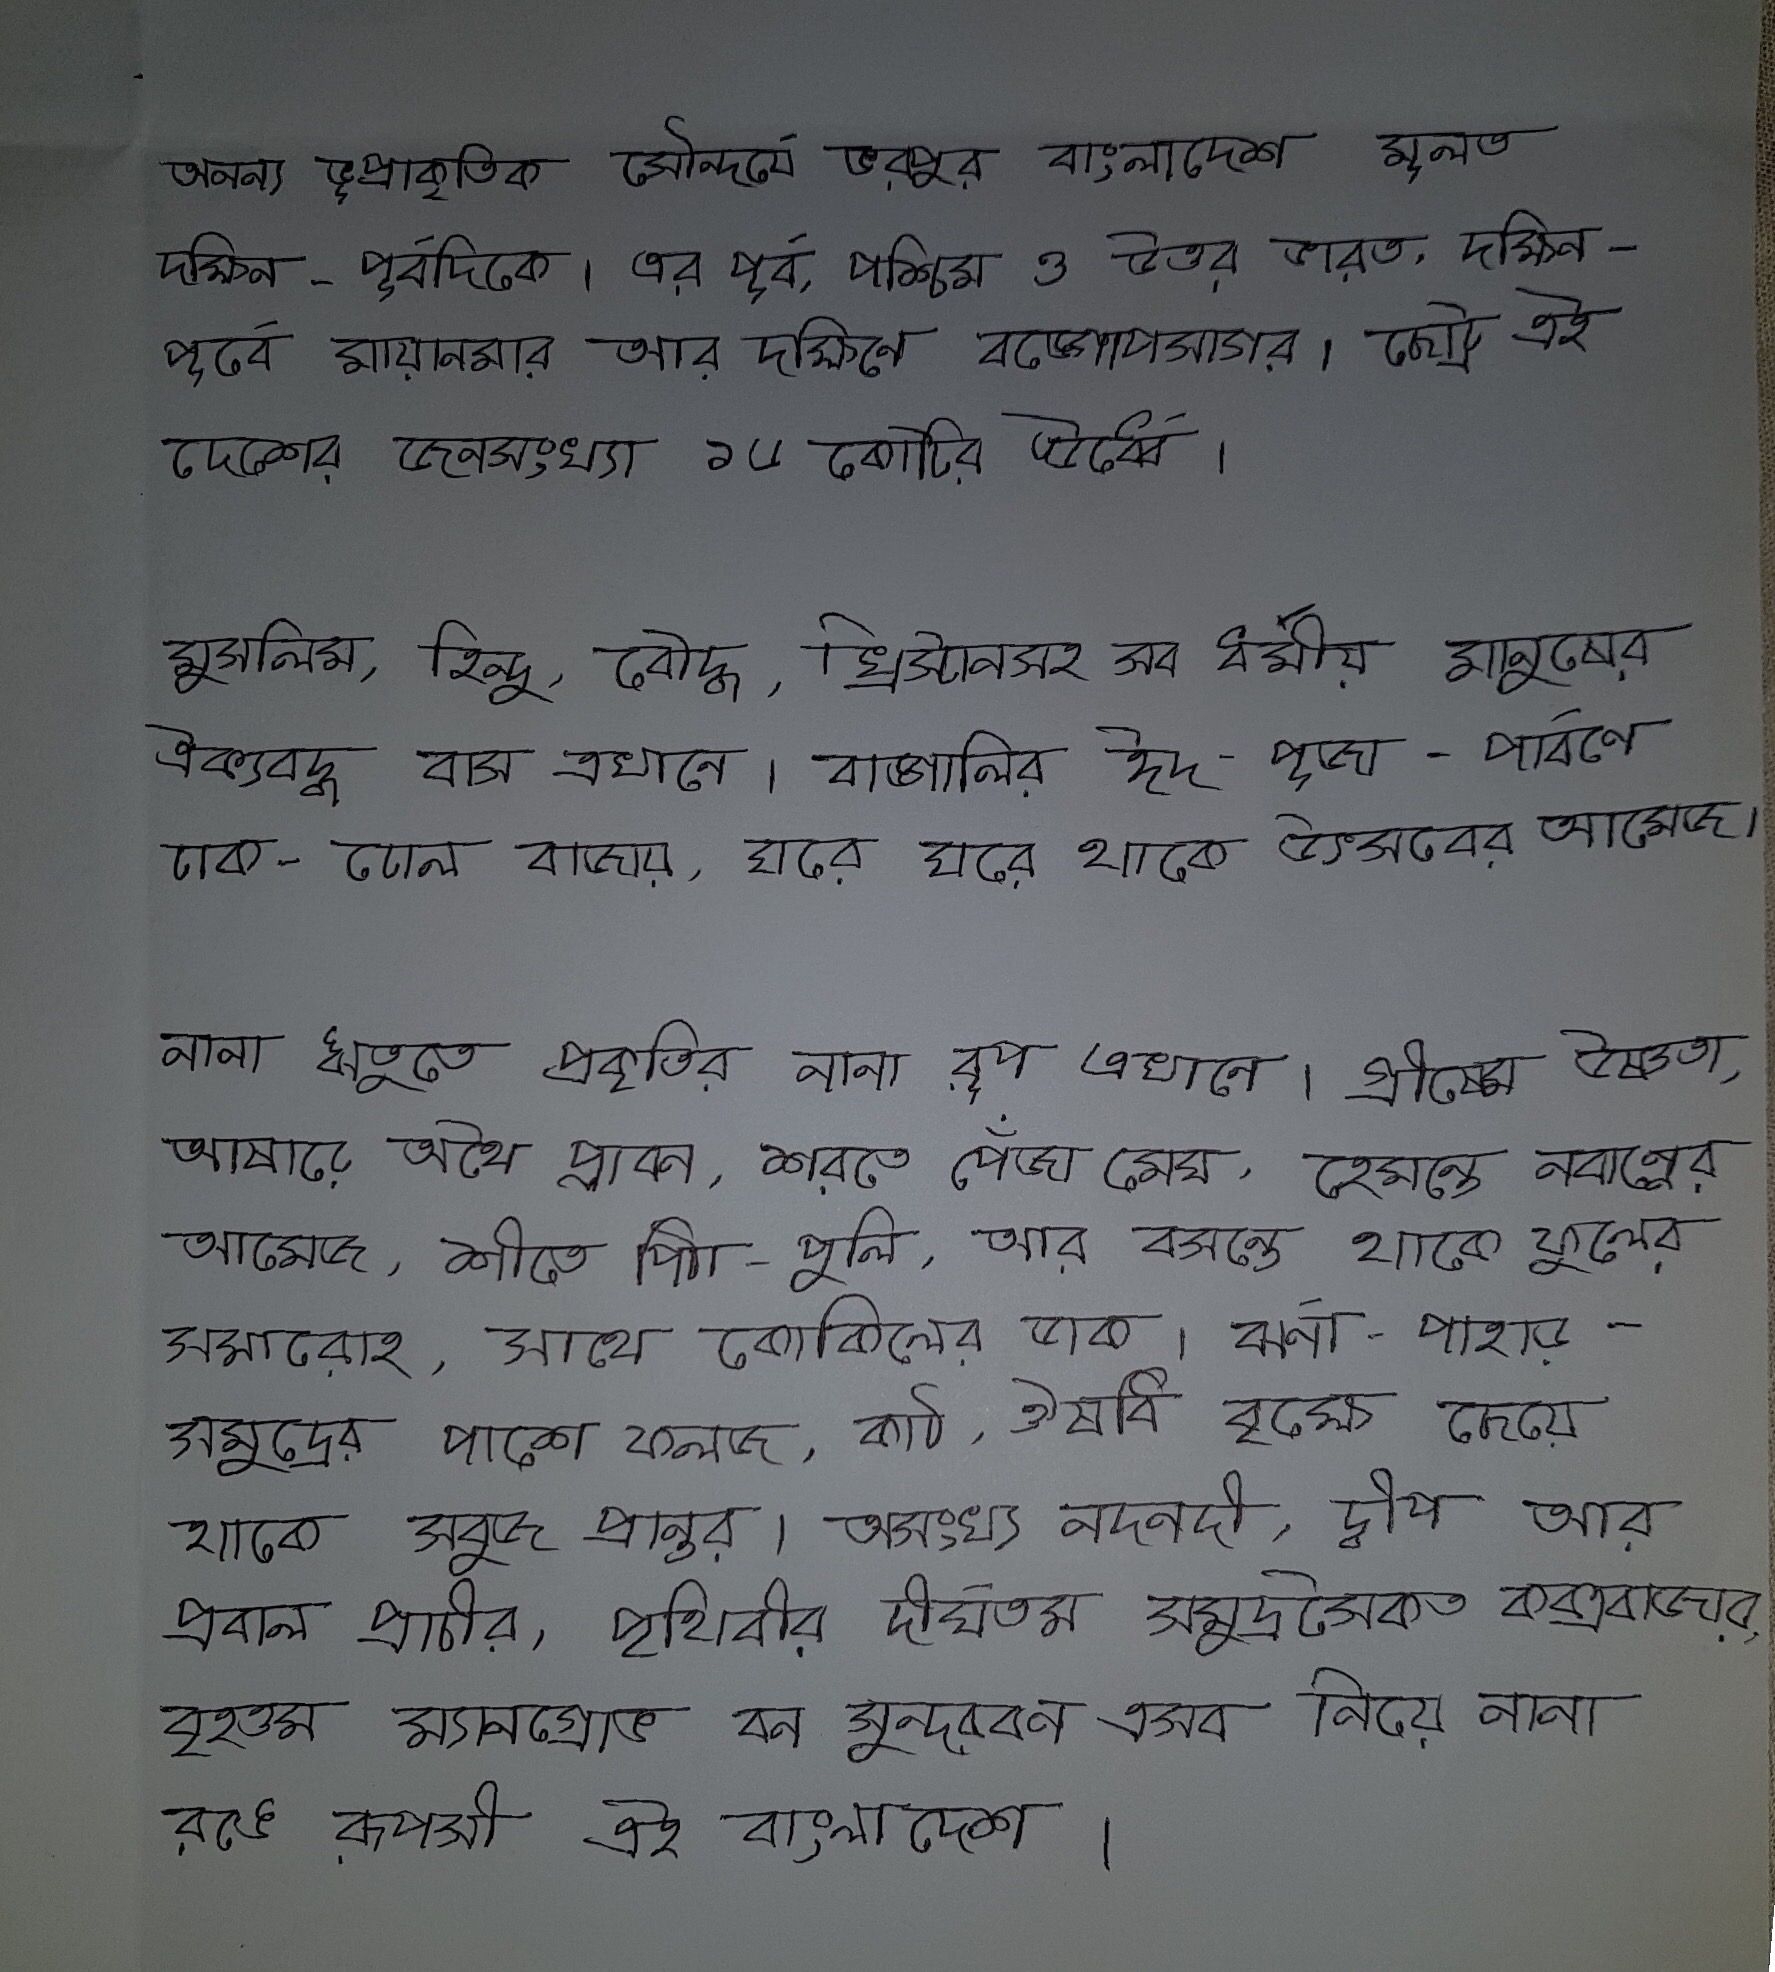 অনন্য ভূপ্রাকৃতিক সৌন্দর্যে ভরপুর বাংলাদেশ মূলত
দক্ষিন - পূর্বদিকে। এর পূর্ব, পশ্চিম ও উত্তর ভারত, দক্ষিন -
পূর্বে মায়ানমার আর দক্ষিনে বঙ্গোপসাগর। ছোট্ট এই
দেশের জনসংখ্যা ১৫ কোটির উর্ধ্বে।
মুসলিম, হিন্দু, বৌদ্ধ, খ্রিস্টানসহ সব ধর্মীয় মানুষের
ঐক্যবদ্ধ বাস এখানে। বাঙ্গালির ঈদ - পূজা - পার্বণে
ঢাক - ঢোল বাজায়, ঘরে ঘরে থাকে উৎসবের আমেজ।
নানা ঋতুতে প্রকৃতির নানা রূপ এখানে। গ্রীষ্মে উষ্ণতা,
আষাঢ়ে অথৈ প্লাবন, শরতে পেঁজা মেঘ, হেমন্তে নবান্নের
আমেজ, শীতে পিঠা - পুলি, আর বসন্তে থাকে ফুলের
সমারোহ, সাথে কোকিলের ডাক। ঝর্না - পাহাড় -
সমুদ্রের পাশে ফলজ, কাঠ, ঔষধি বৃক্ষে ছেয়ে
থাকে সবুজ প্রান্তর। অসংখ্য নদনদী, দ্বীপ আর
প্রবাল প্রাচীর, পৃথিবীর দীর্ঘতম সমুদ্রসৈকত কক্সবাজার,
বৃহত্তম ম্যানগ্রোভ বন সুন্দরবন এসব নিয়ে নানা
রঙে রূপসী এই বাংলাদেশ।